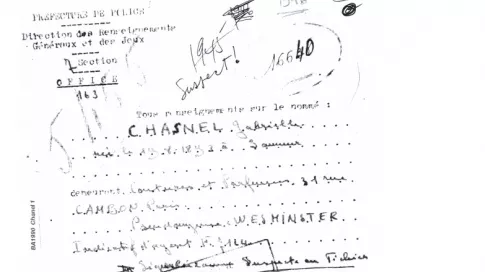 PREFECTURE DE POLICE
Direction des Renseignements
Généraux et des Jeux
Section
OFFICE
163
1945
Suspect!
16640
Tous renseignements sur le nommé :
CHASNEL Gabrielle
née le 19.8.1883 à Saumur
demeurant Couturier et Parfumeur 31 rue
CAMBON Paris
Pseudonyme: WESMINSTER
Indicatif d'agent F. 7124
Signalée comme suspecte au Fichier
BA1990 Chanel 1